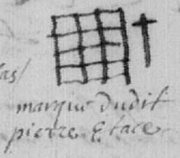 las
marque dudit
pierre Etace